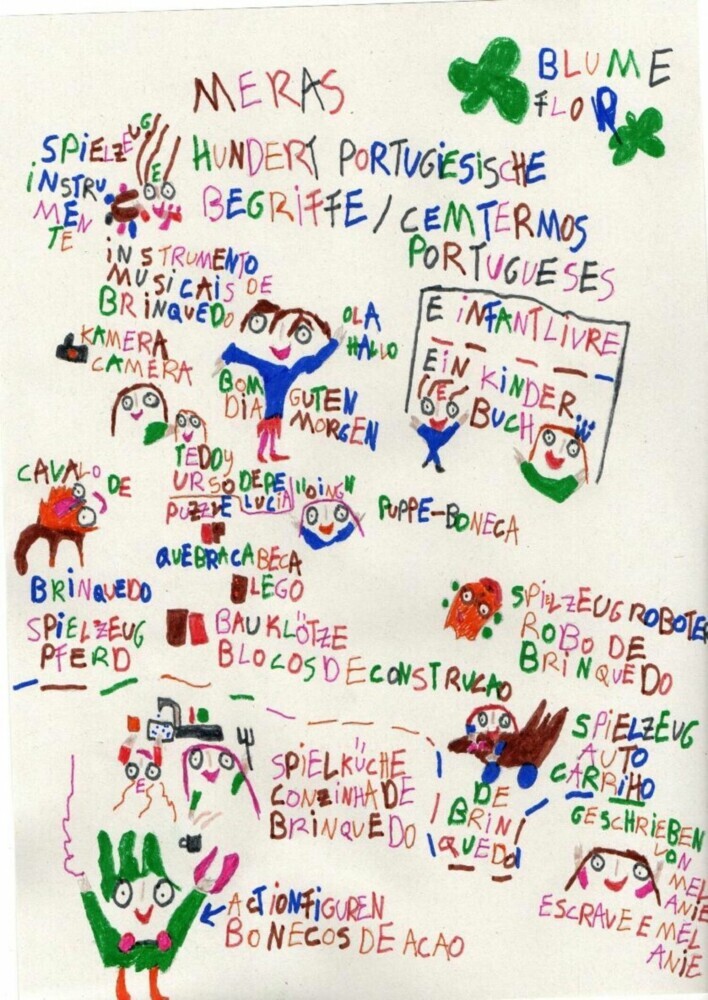 MERAS
BLUME
FLOR
SPIELZEUG
INSTRU
MEN
TE
HUNDERT PORTUGIESISCHE
BEGRIFFE / CEMTERMOS
PORTUGUESES
INSTRUMENTO
MUSICAIS DE
BRINQUEDO
KAMERA
CAMERA
OLA
HALLO
BOM
DIA
GUTEN
MORGEN
E INFANTLIVRE
EIN KINDER
BUCH
TEDDY
URSO DE PE
LUCIA
PUZZLE
QUEBRACABECA
PUPPE-BONECA
CAVALO DE
BRINQUEDO
SPIELZEUG
PFERD
LEGO
BAUKLÖTZE
BLOCOS DE CONSTRUCAO
SPIELZEUG ROBOTER
ROBO DE
BRINQUEDO
SPIELKÜCHE
CONZINHA DE
BRINQUEDO
SPIELZEUG
AUTO
CARRIHO
DE
BRIN
QUEDO
GESCHRIEBEN
VON
MEL
ANIE
ESCRAVE E MEL
ANIE
ACTIONFIGUREN
BONECOS DE ACAO